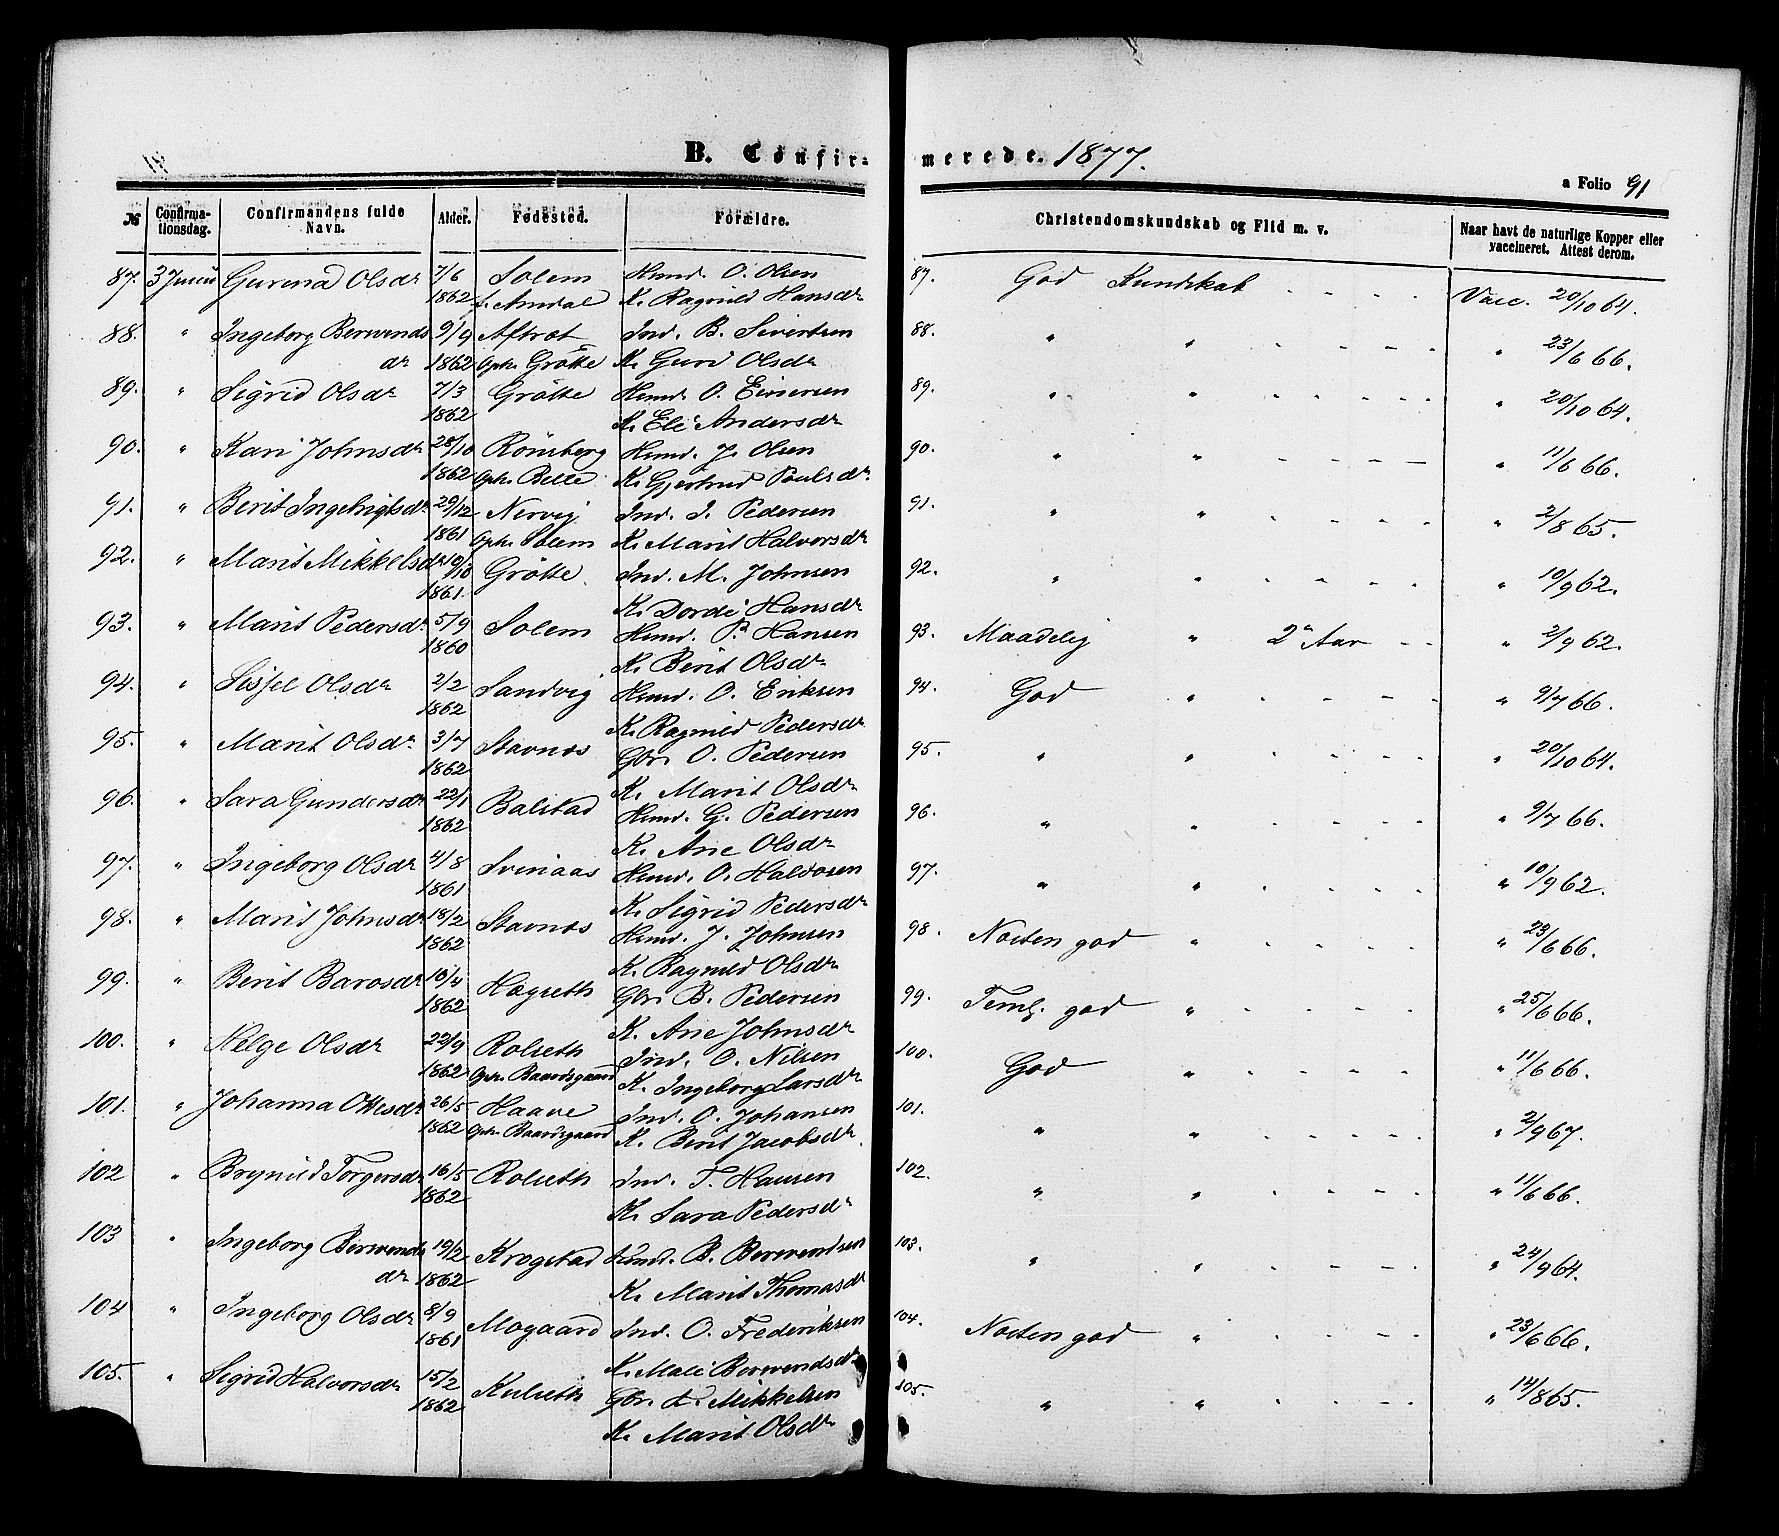 B. Confir- merede. 1877.
a Folio 91
№ Confirma-tionsdag. Confirmandens fulde Navn. Alder. Fødested. Forældre. Christendomskundskab og Flid m. v. Naar havt de naturlige Kopper eller vaccineret. Attest derom.
87. 3 Junii Gurina Olsdr 7/6 Solem Huusmd. O. Olsen 87. God Kundskab - - - - Vacc. 20/10 64.
1862 K. Ragnild Hansdr
88. " Ingeborg Berwends 9/9 Aftrøt Ind. B. Sivertsen 88. " " - - - - " 23/6 66.
dr 1862 Oph. Grötte K. Guri Olsdr
89. " Sigrid Olsdr 7/3 Grötte Huusmd. O. Einersen 89. " " - - - - " 20/10 64.
1862 K. Eli Andersdr
90. " Kari Johnsdr 28/10 Rönsberg Huusmd. J. Olsen 90. " " - - - - " 11/6 66.
1862 Oph. Belle K. Gjertrud Poulsdr
91. " Berit Ingebrigtsdr 29/12 Nervig Ind. I. Pedersen 91. " " - - - - " 2/8 65.
1861 Oph. Solem K. Marit Halvorsdr
92. " Marit Mikkelsdr 10/10 Grötte Ind. M. Johnsen 92. " " - - - - " 10/9 62.
1861. K. Dordi Hansdr
93. " Marit Pedersdr 5/9 Solem Huusmd. P. Hansen 93. Maadelig " 2n Aar - - " 2/9 62.
1860 K. Berit Olsdr
94. " Sissel Olsdr 2/2 Sandvig Huusmd. O. Eriksen 94. God " - - - - " 9/7 66.
1862 K. Ragnild Pedersdr
95. " Marit Olsdr 3/7 Stavnes Gbr. O. Pedersen 95. " " - - - - " 20/10 64.
1862 K. Marit Olsdr
96. " Sara Gundersdr 22/1 Balstad Huusmd. G. Pedersen 96. " " - - - - " 9/7 66.
1862 K. Ane Olsdr
97. " Ingeborg Olsdr 4/8 Svinaas Huusmd. O. Halvorsen 97. " " - - - - " 10/9 62.
1861 K. Sigrid Pedersdr
98. " Marit Johnsdr 18/2 Stavnes Huusmd. J. Johnsen 98. Næsten god " - - - - " 23/6 66.
1862 K. Ragnild Olsdr
99. " Berit Barosdr 10/4 Høgseth Gbr. B. Pedersen 99. Teml. god " - - - - " 25/6 66.
1862 K. Ane Johnsdr
100. " Helge Olsdr 22/9 Rolseth Ind. O. Nilsen 100. God " - - - - " 11/6 66.
1862 Oph. Baardsgaard K. Ingeborg Larsdr
101. " Johanna Ottesdr 26/5 Haave Ind. O. Johansen 101. " " - - - - " 2/9 67.
1862 Oph. Baardsgaard K. Berit Jacobsdr
102 " Brynild Torgersdr 16/5 Rolseth Ind. T. Hansen 102. " " - - - - " 11/6 66.
1862 K. Sara Pedersdr
103 " Ingeborg Berwends 19/2 Krogstad Huusmd. B. Berwendsen 103. " " - - - - " 24/9 64.
dr 1862 K. Marit Thomasdr
104 " Ingeborg Olsdr 8/9 Mogaard Ind. O. Frederiksen 104. Næsten god " - - - - " 23/6 66.
1861 K. Mali Berwendsdr
105. " Sigrid Halvorsdr 15/2 Kulseth Gbr. H. Mikkelsen 105. " " - - - - " 14/8 65.
1862 K. Marit Olsdr